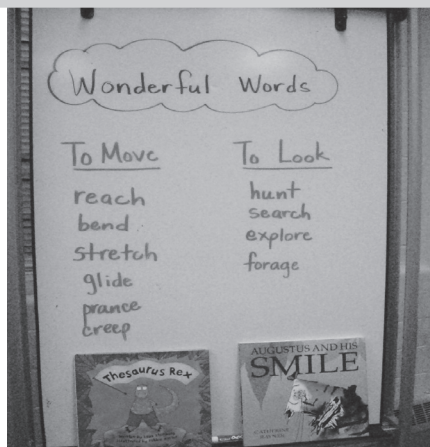 Wonderful Words
To Move
reach
bend
stretch
glide
prance
creep
To Look
hunt
search
explore
forage
Thesaurus Rex
AUGUSTUS AND HIS
SMILE